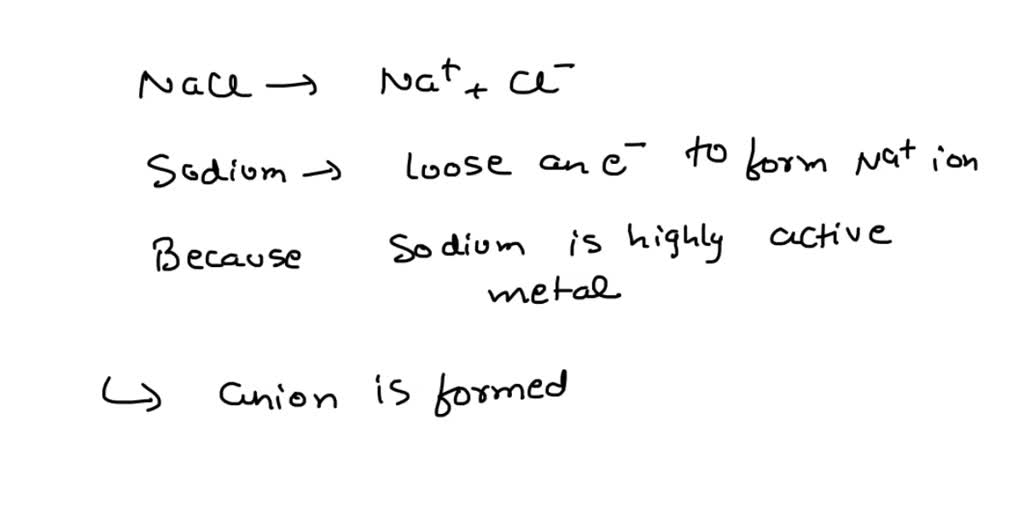 NaCl → Na⁺ + Cl⁻
Sodium → loose an e⁻ to form Na⁺ ion
Because Sodium is highly active
metal
↳ anion is formed